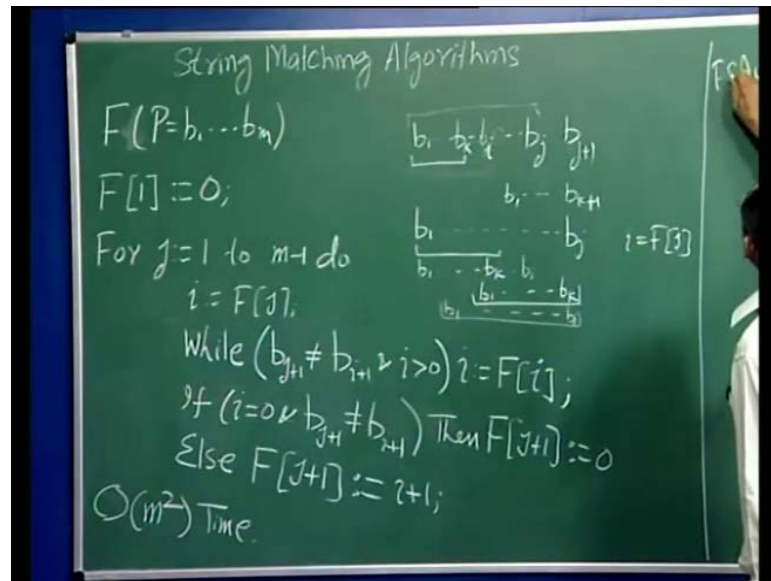 String Matching Algorithms
F(P=b₁...bₘ)
F[1]:=0;
For j:=1 to m-1 do
i:=F[j];
While (bⱼ₊₁≠bᵢ₊₁ & i>0) i:=F[i];
If (i=0 & bⱼ₊₁≠bᵢ₊₁) Then F[j+1]:=0
Else F[j+1]:=i+1;
O(m²) Time.
bⱼ bⱼ₊₁
b₁ -- bₖ₊₁
b₁ ------- bⱼ
i=F[j]
b₁ -- bₖ bᵢ
b₁ ---- bₖ
b₁ ----- bᵢ